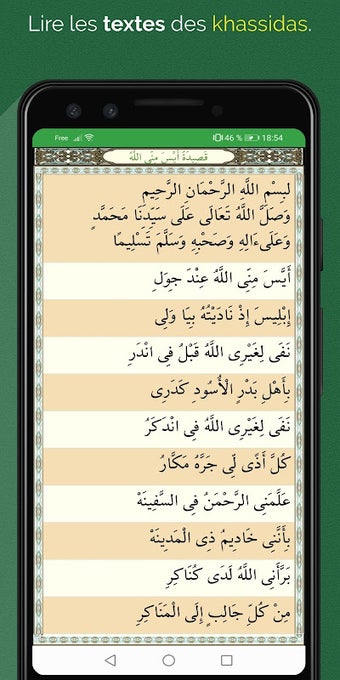 Lire les textes des khassidas.
Free 46 % 18:54
قَصِيدَةُ أَيَسَ مِنِّى اللَّهُ
لبِسْمِ اللَّهِ الرَّحْمَانِ الرَّحِيمِ
وَصَلَّ اللَّهُ تَعَالَى عَلَى سَيِّدِنَا مَحَمَّدٍ
وَعَلَىءَالِهِ وَصَحْبِهِ وَسَلَّمَ تَسْلِيمًا
أَيَّسَ مِنِّي اللَّهُ عِنْدَ جوَلِ
إِبْلِيسَ إِذْ نَادَيْتُهُ بِيَا وَلِى
نَفَى لِغَيْرِى اللَّهُ قَبْلُ فِى انْدَرِ
بِأَهْلِ بَدْرٍ الْأُسُودِ كَدَرِى
نَفَى لِغَيْرِى اللَّهُ فِى انْدَكَرُ
كُلَّ أَذًى لِّى جَرَّهُ مَكَّارُ
عَلَّمَنِى الرَّحْمَنُ فِى السَّفِينَهْ
بِأَنَّنِى خَادِيمُ ذِى الْمَدِينَهْ
بَرَّأَنِى اللَّهُ لَدَى كُنَاكِرِ
مِنْ كُلِّ جَالِبٍ إِلَى الْمَنَاكِرِ